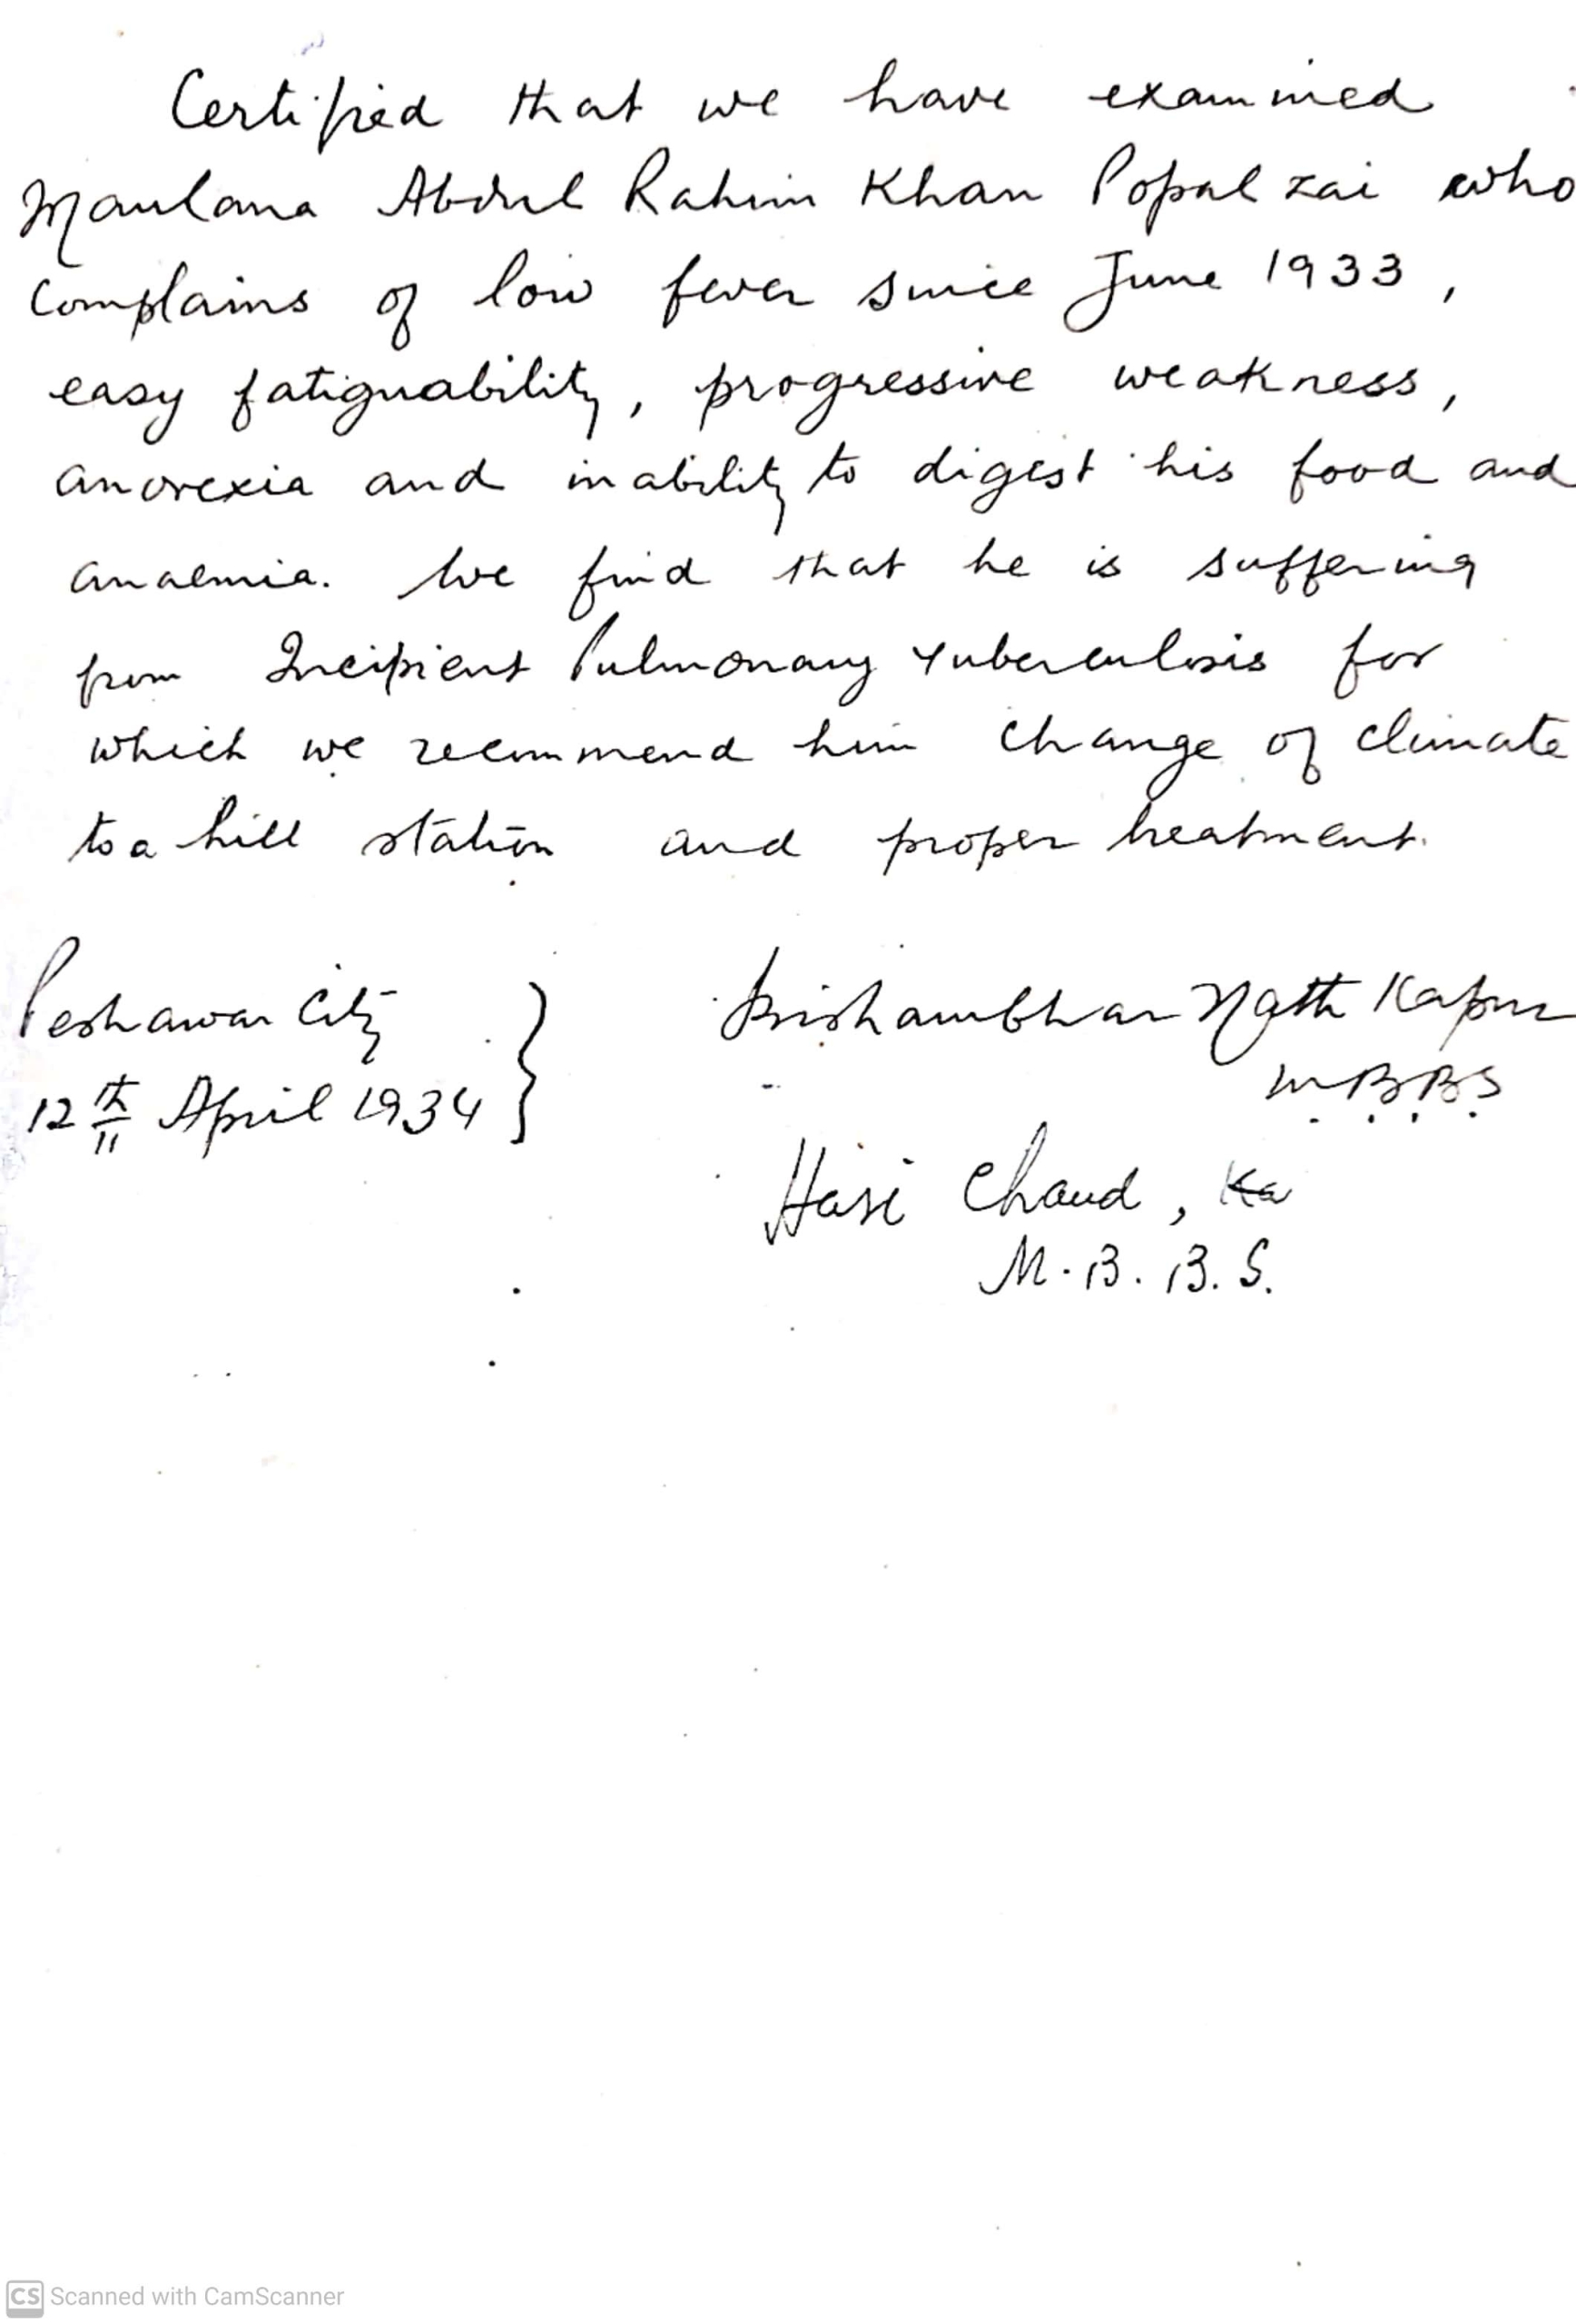 Certified that we have examined
Maulana Abdul Rahim Khan Popalzai who
complains of low fever since June 1933,
easy fatiguability, progressive weakness,
anorexia and inability to digest his food and
anaemia. We find that he is suffering
from Incipient Pulmonary Tuberculosis for
which we recommend him change of climate
to a hill station and proper treatment.
Peshawar City
12th April 1934
Bishambhar Nath Kapur
M.B.B.S
Hari Chand,
M.B.B.S.
CS Scanned with CamScanner